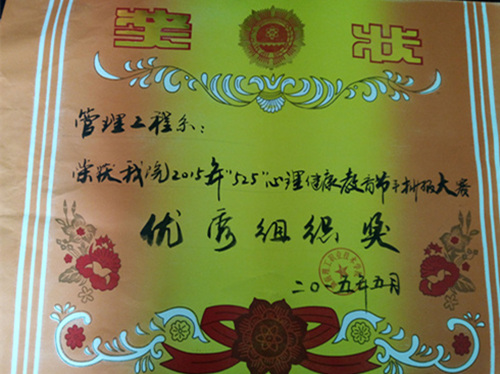 奖状
管理工程系：
荣获我院2015年“525”心理健康教育节手抄报大赛
优秀组织奖
二〇一五年五月